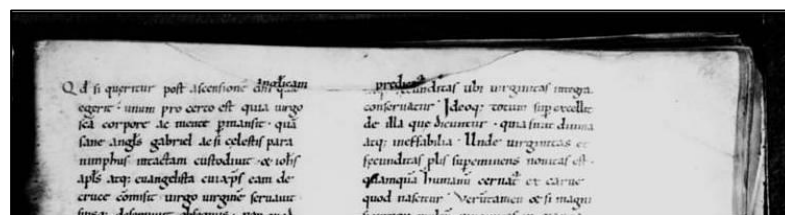 Qd si queritur post ascensionē angelicam
egerit · unum pro certo est quia uirgo
scā corpore ac mente pmansit · quā
sane angls gabriel ac si celestis para
nimphus intactam custodiuit · & iohs
apls atq; euangelista cui xps eam de
cruce cōmisit · uirgo uirginē seruauit ·
fecunditas ubi uirginitas integra
conseruatur · Ideoq; totum sup excellit
de illa que dicuntur · quia sunt diuina
atq; ineffabilia · Unde uirginitas et
fecunditas pls supeminens nouitas est ·
humanū cernat et carne
quod nascitur · Verumtamen & si magni